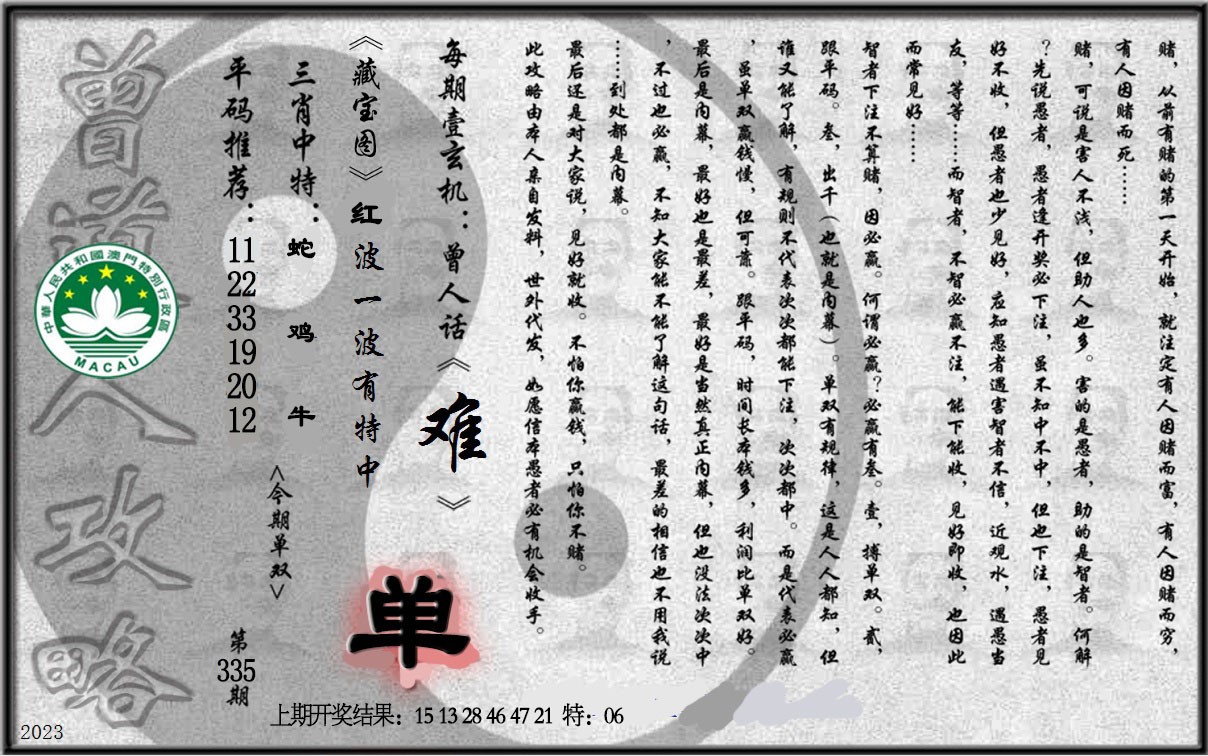 赌，从前有赌的第一天开始，就注定有人因赌而富，有人因赌而穷，
有人因赌而死……
赌，可说是害人不浅，但助人也多。害的是愚者，助的是智者。何解
？先说愚者，愚者逢开奖必下注，虽不知中不中，但也下注，愚者见
好不收，但愚者也少见好，应知愚者遇害智者不信，近观水，遇愚当
友，等等……而智者，不智必赢不注，能下能收，见好即收，也因此
而常见好……
智者下注不算赌，因必赢。何谓必赢？必赢有叁。壹，搏单双。贰，
跟平码。叁，出千（也就是内幕）。单双有规律，这是人人都知，但
谁又能了解，有规则不代表次次都能下注，次次都中。而是代表必赢
，虽单双赢钱慢，但可靠。跟平码，时间长本钱多，利润比单双好。
最后是内幕，最好也是最差，最好是当然真正内幕，但也没法次次中
，不过也必赢，不知大家能不能了解这句话，最差的相信也不用我说
……到处都是内幕。
最后还是对大家说，见好就收。不怕你赢钱，只怕你不赌。
此攻略由本人亲自发料，世外代发，如愿信本愚者必有机会收手。
每期壹玄机：曾人话《难》
《藏宝图》红波一波有特中
单
三肖中特：蛇 鸡 牛
<今期单双>
平码推荐：11 22 33 19 20 12
第335期
曾道人攻略
中華人民共和國澳門特別行政區
MACAU
上期开奖结果：15 13 28 46 47 21 特：06
2023